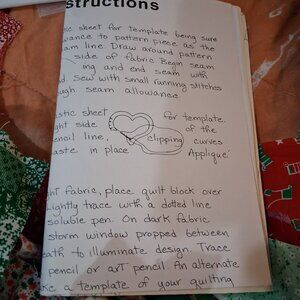 structions
sheet for template being sure
wance to pattern piece as the
am line. Draw around pattern
side of fabric. Begin seam
ing and end seam with
d. Sew with small running stitches
ugh seam allowance.
stic sheet for template.
ght side of the
encil line, clipping curves
aste in place Applique'
ht fabric, place quilt block over
Lightly trace with a dotted line
soluble pen. On dark fabric
storm window propped between
eath to illuminate design. Trace
pencil or art pencil. An alternate
ke a template of your quilting